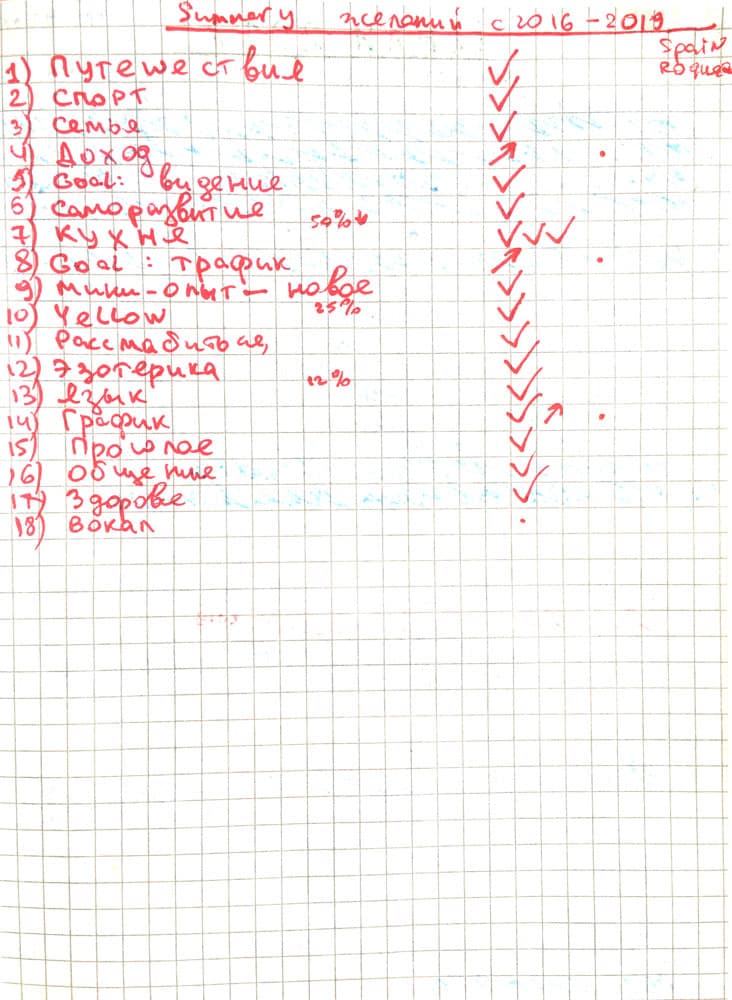 Summery желаний с 2016 - 2019
Spain
1) Путешествия
2) Спорт
3) Семья
4) Доход
5) Goal: видение
6) Саморазвитие
50%
7) Кухня
8) Goal: трафик
9) Мини-опыт - новое
10) Yellow
25%
11) Расслабиться,
12) Эзотерика
12%
13) Язык
14) График
15) Прошлое
16) Общение
17) Здоровье
18) Вокал